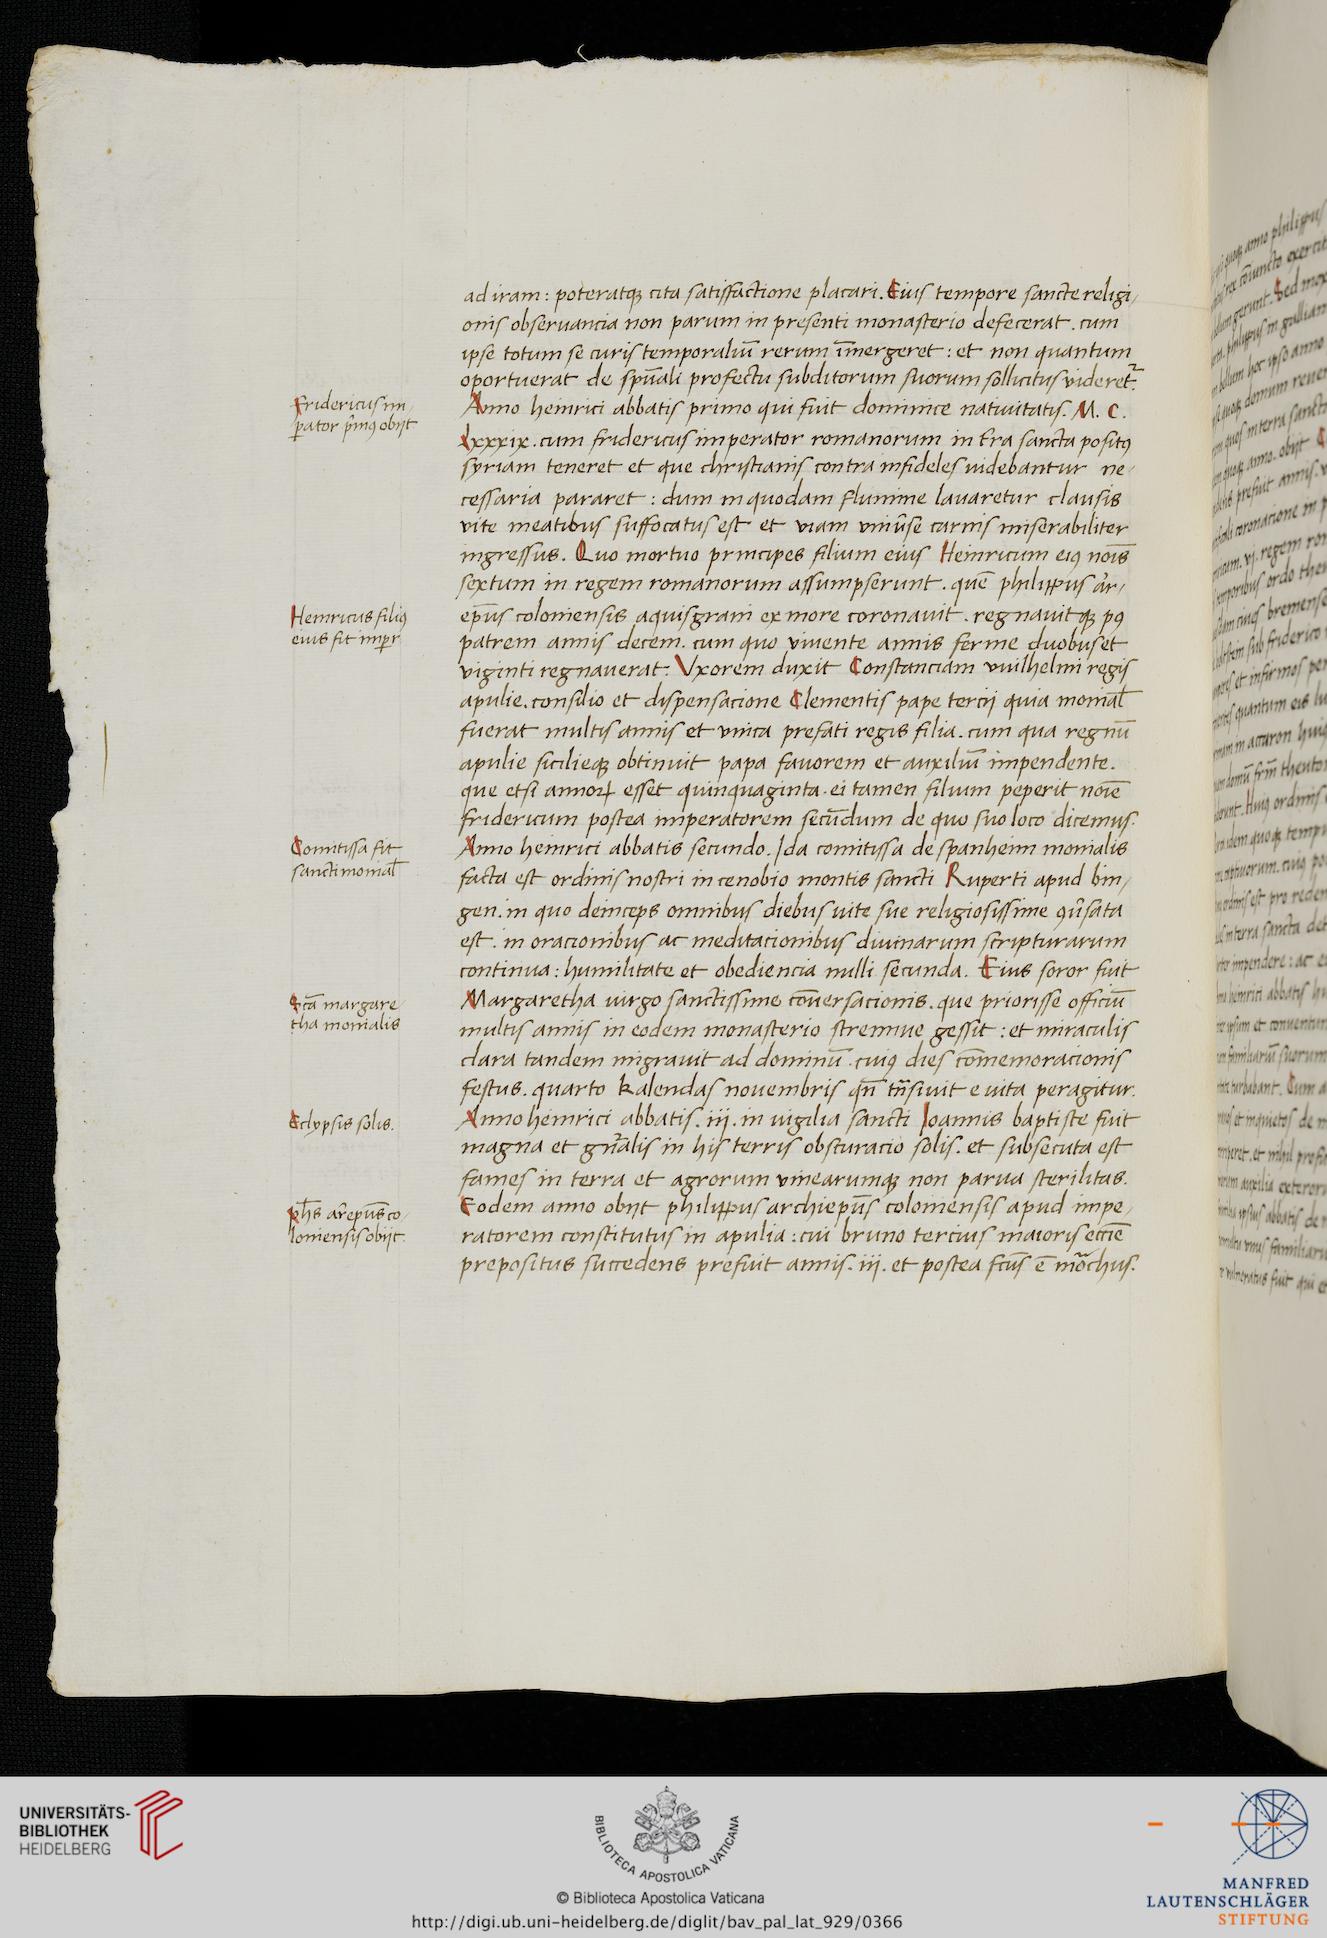 ad iram : poteratqꝫ cita satisfactione placari . Eius tempore sancte religi-
onis obseruancia non parum in presenti monasterio defecerat . cum
ipse totum se curis temporaliū rerum īmergeret : et non quantum
oportuerat de spūali profectu subditorum suorum sollicitus videret᷑.
Fridericus im-
ꝑator pͥmꝰ obijt
Anno heinrici abbatis primo qui fuit dominice natiuitatis. M. C.
lxxxix. cum fridericus imperator romanorum in terra sancta positꝰ
syriam teneret et que christianis contra infideles videbantur ne-
cessaria pararet : dum in quodam flumine lauaretur clausis
vite meatibus suffocatus est et viam vniūse carnis miserabiliter
ingressus. Quo mortuo principes filium eius Heinricum eiꝰ nois̄
sextum in regem romanorum assumpserunt . quē philippus ar̄-
Heinricus filiꝰ
eius fit imꝑr
ep̄us coloniensis aquisgrani ex more coronauit . regnauitqꝫ pꝰ
patrem annis decem . cum quo viuente annis ferme duobus et
viginti regnauerat : Vxorem duxit Constanciam vuilhelmi regis
apulie . consilio et dispensacione Clementis pape tercij quia monial̄
fuerat multis annis et vnica prefati regis filia . cum qua regnū
apulie sicilieqꝫ obtinuit papa fauorem et auxiliū impendente .
que etsi annoꝝ esset quinquaginta . ei tamen filium peperit noīe
fridericum postea imperatorem secūdum de quo suo loco dicemus.
Comitissa fit
sanctimonial̄
Anno heinrici abbatis secundo . Ida comitissa de spanheim monialis
facta est ordinis nostri in cenobio montis sancti Ruperti apud bin-
gen . in quo deinceps omnibus diebus vite sue religiosissime ꝯūsata
est . in oracionibus ac meditacionibus diuinarum scripturarum
continua : humilitate et obediencia nulli secunda . Eius soror fuit
Scā margare
tha monialis
Margaretha virgo sanctissime cōuersacionis . que priorisse officiū
multis annis in eodem monasterio strennue gessit : et miraculis
clara tandem migrauit ad dominū . cuiꝰ dies cōmemoracionis
festus . quarto kalendas nouembris qn̄ trn̄siuit e vita peragitur.
Eclypsis solis.
Anno heinrici abbatis . iij . in vigilia sancti Ioannis baptiste fuit
magna et gn̄alis in his terris obscuracio solis . et subsecuta est
fames in terra et agrorum vinearumqꝫ non parua sterilitas.
ph̄s ar̄ep̄us co-
loniensis obijt.
Eodem anno obijt philippus archiep̄us coloniensis apud impe-
ratorem constitutus in apulia : cui bruno tercius maioris eccīe
prepositus succedens prefuit annis . iij . et postea fcūs ē mōchus.
UNIVERSITÄTS-
BIBLIOTHEK
HEIDELBERG
BIBLIOTECA APOSTOLICA VATICANA
© Biblioteca Apostolica Vaticana
http://digi.ub.uni-heidelberg.de/diglit/bav_pal_lat_929/0366
MANFRED
LAUTENSCHLÄGER
STIFTUNG